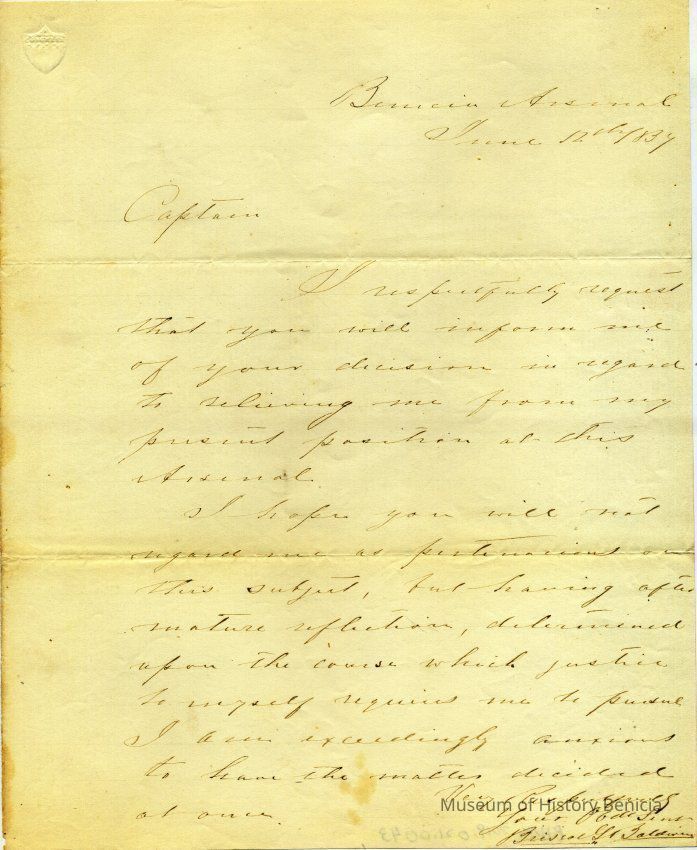 Benicia Arsenal
June 12th 1857
Captain
I respectfully request
that you will inform me
of your decision in regard
to relieving me from my
present position at this
Arsenal
I hope you will not
regard me as pertinacious on
this subject, but having after
mature reflection, determined
upon the course which justice
to myself requires me to pursue
I am exceedingly anxious
to have the matter decided
at once
Very
Your Obdt Servt
Briscoe G Baldwin
Museum of History Benicia